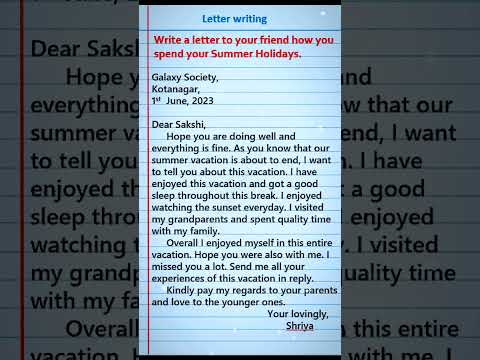 Letter writing
Write a letter to your friend how you
spend your Summer Holidays.
Galaxy Society,
Kotanagar,
1st June, 2023
Dear Sakshi,
Hope you are doing well and
everything is fine. As you know that our
summer vacation is about to end, I want
to tell you about this vacation. I have
enjoyed this vacation and got a good
sleep throughout this break. I enjoyed
watching the sunset everyday. I visited
my grandparents and spent quality time
with my family.
Overall I enjoyed myself in this entire
vacation. Hope you were also with me. I
missed you a lot. Send me all your
experiences of this vacation in reply.
Kindly pay my regards to your parents
and love to the younger ones.
Your lovingly,
Shriya